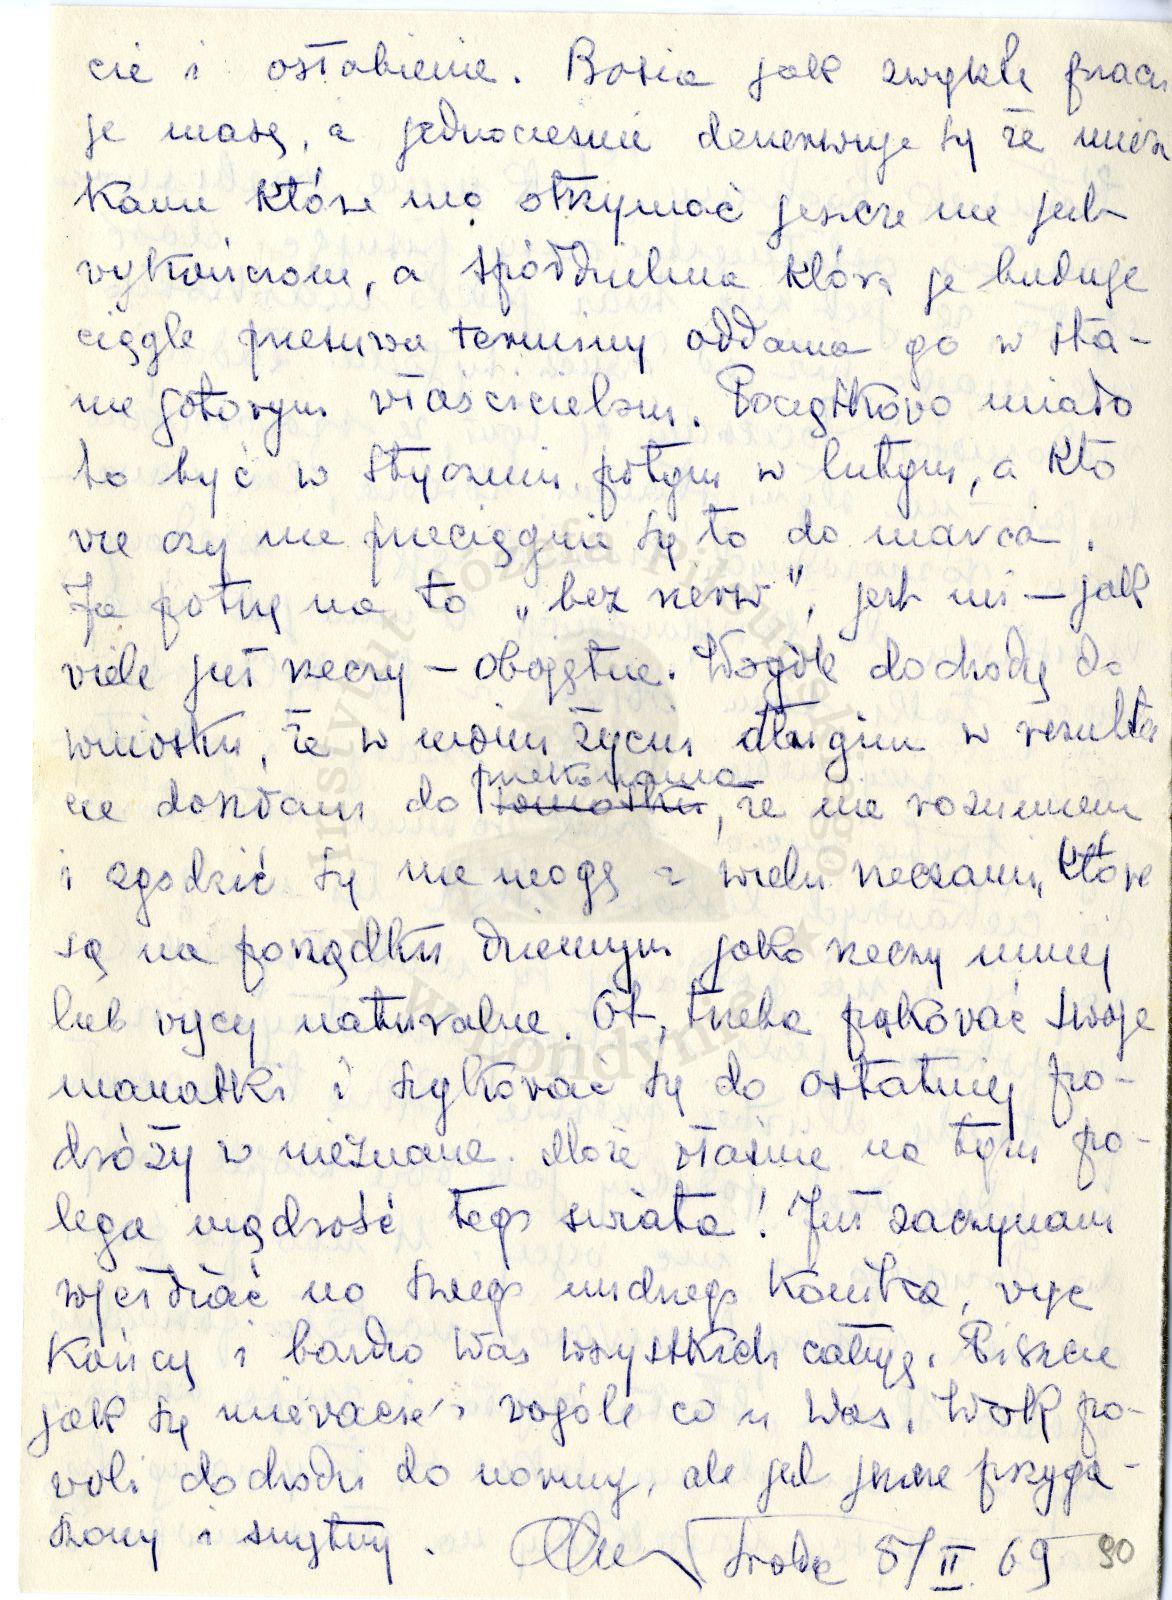 cie i osłabienie. Bosia jak zwykle pracu
je masę, a jednocześnie denerwuje się że miesz
kanie które ma otrzymać jeszcze nie jest
wykończone, a spółdzielnia która je buduje
ciągle przesuwa terminy oddania go w sta-
nie gotowym właścicielom. Początkowo miało
to być w styczniu potym w lutym, a kto
wie czy nie przeciągnie się to do marca.
Ja patrzę na to „bez nerw", jest mi – jak
wiele już rzeczy – obojętne. Wogóle dochodzę do
wniosku, że w moim życiu długim w rezulta
cie doszłam do przekonania, że nie rozumiem
i zgodzić się nie mogę z wielu rzeczami, które
są na porządku dziennym jako rzeczy mniej
lub więcy naturalne. Ot, trzeba pakować swoje
manatki i szykować się do ostatniej po-
dróży w nieznane. Może właśnie na tym po-
lega mądrość tego świata! Już zaczynam
wjeżdżać na swego nudnego konika, więc
kończę i bardzo Was wszystkich całuję. Piszcie
jak się miewacie i wogóle co u Was. Wolk po-
woli dochodzi do normy, ale jest jeszcze przyga-
szony i smutny.
Środa 5/II 69 90
Instytut Józefa Piłsudskiego
w Londynie